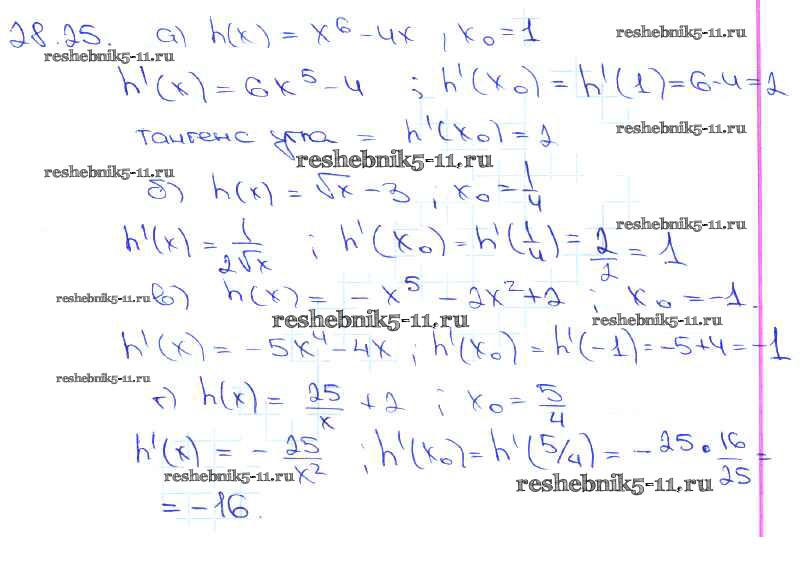 28.25. а) h(x) = x⁶ - 4x , x₀ = 1
reshebnik5-11.ru
reshebnik5-11.ru
h'(x) = 6x⁵ - 4 ; h'(x₀) = h'(1) = 6-4 = 2
тангенс угла = h'(x₀) = 2
reshebnik5-11.ru
reshebnik5-11.ru
reshebnik5-11.ru
б) h(x) = √x - 3 ; x₀ = 1/4
reshebnik5-11.ru
h'(x) = 1/(2√x) ; h'(x₀) = h'(1/4) = 2/2 = 1
reshebnik5-11.ru
в) h(x) = -x⁵ - 2x² + 2 ; x₀ = -1.
reshebnik5-11.ru
reshebnik5-11.ru
h'(x) = -5x⁴ - 4x ; h'(x₀) = h'(-1) = -5+4 = -1
reshebnik5-11.ru
г) h(x) = 25/x + 2 ; x₀ = 5/4
h'(x) = - 25/x² ; h'(x₀) = h'(5/4) = -25 • 16/25 =
reshebnik5-11.ru
reshebnik5-11.ru
= -16.